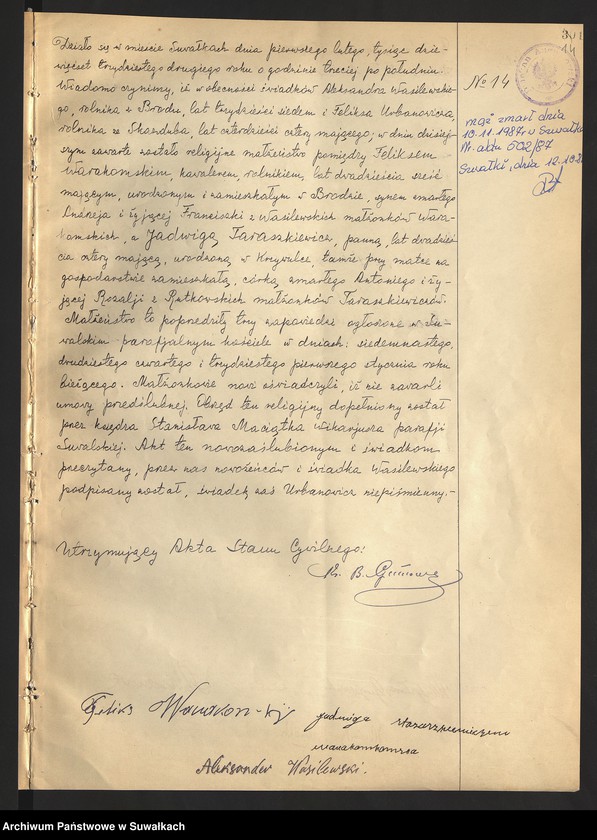 Działo się w mieście Suwałkach dnia pierwszego lutego, tysiąc dzie-
więćset trzydziestego drugiego roku o godzinie trzeciej po południu.
Wiadomo czynimy, iż w obecności świadków Aleksandra Wasilewskie-
go, rolnika z Brodu, lat trzydzieści siedem i Feliksa Urbanowicza,
rolnika ze Skarduba, lat czterdzieści cztery mającego, w dniu dzisiej-
szym zawarte zostało religijne małżeństwo pomiędzy Feliksem
Warakomskim, kawalerem, rolnikiem, lat dwadzieścia sześć
mającym, urodzonym i zamieszkałym w Brodzie, synem zmarłego
Andrzeja i żyjącej Franciszki z Wasilewskich małżonków Wara-
komskich, a Jadwigą Taraszkiewicz, panną, lat dwadzieś-
cia cztery mającą, urodzoną w Krzywulce, tamże przy matce na
gospodarstwie zamieszkałą, córką zmarłego Antoniego i ży-
jącej Rozalji z Rutkowskich małżonków Taraszkiewiczów.
Małżeństwo to poprzedziły trzy zapowiedzi ogłoszone w Su-
walskim parafjalnym kościele w dniach: siedemnastego,
dwudziestego czwartego i trzydziestego pierwszego stycznia roku
bieżącego. Małżonkowie nowi oświadczyli, iż nie zawarli
umowy przedślubnej. Obrzęd ten religijny dopełniony został
przez księdza Stanisława Maciątka Wikarjusza parafji
Suwalskiej. Akt ten nowozaślubionym i świadkom
przeczytany, przez nas nowożeńców i świadka Wasilewskiego
podpisany został, świadek zaś Urbanowicz niepiśmienny.-
Utrzymujący Akta Stanu Cywilnego:
Ks. B.
Feliks Warakom-ski
Jadwiga
Aleksander Wasilewski.
№ 14
mąż zmarł dnia
10.11.1987 w Suwałkach
Nr. aktu 502/87
Suwałki, dnia 12.10.
14
Archiwum Państwowe w Suwałkach